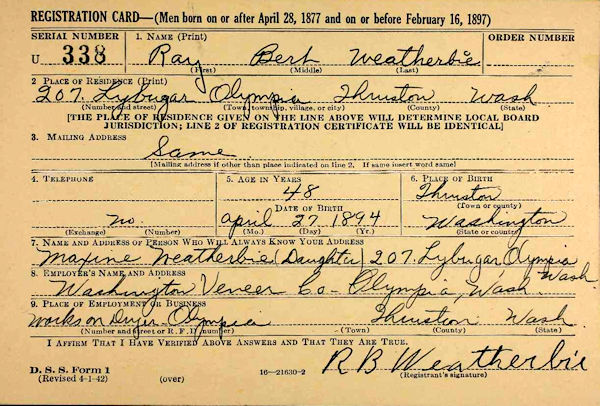 REGISTRATION CARD—(Men born on or after April 28, 1877 and on or before February 16, 1897)
SERIAL NUMBER 1. NAME (Print) ORDER NUMBER
U 338 Ray Bert Weatherbie
(First) (Middle) (Last)
2. PLACE OF RESIDENCE (Print)
207. Lybugar Olympia Thurston Wash
(Number and street) (Town, township, village, or city) (County) (State)
[THE PLACE OF RESIDENCE GIVEN ON THE LINE ABOVE WILL DETERMINE LOCAL BOARD
JURISDICTION; LINE 2 OF REGISTRATION CERTIFICATE WILL BE IDENTICAL]
3. MAILING ADDRESS
Same
[Mailing address if other than place indicated on line 2. If same insert word same]
4. TELEPHONE 5. AGE IN YEARS 6. PLACE OF BIRTH
48 Thurston
DATE OF BIRTH (Town or county)
no. April 27 1894 Washington
(Exchange) (Number) (Mo.) (Day) (Yr.) (State or country)
7. NAME AND ADDRESS OF PERSON WHO WILL ALWAYS KNOW YOUR ADDRESS
Maxine Weatherbie (Daughter) 207. Lybugar Olympia
Wash
8. EMPLOYER'S NAME AND ADDRESS
Washington Veneer Co- Olympia, Wash
9. PLACE OF EMPLOYMENT OR BUSINESS
Works on Dryer- Olympia Thurston Wash.
(Number and street or R. F. D. number) (Town) (County) (State)
I AFFIRM THAT I HAVE VERIFIED ABOVE ANSWERS AND THAT THEY ARE TRUE.
R B Weatherbie
D. S. S. Form 1
(Revised 4-1-42) (over) 16—21630-2 (Registrant's signature)